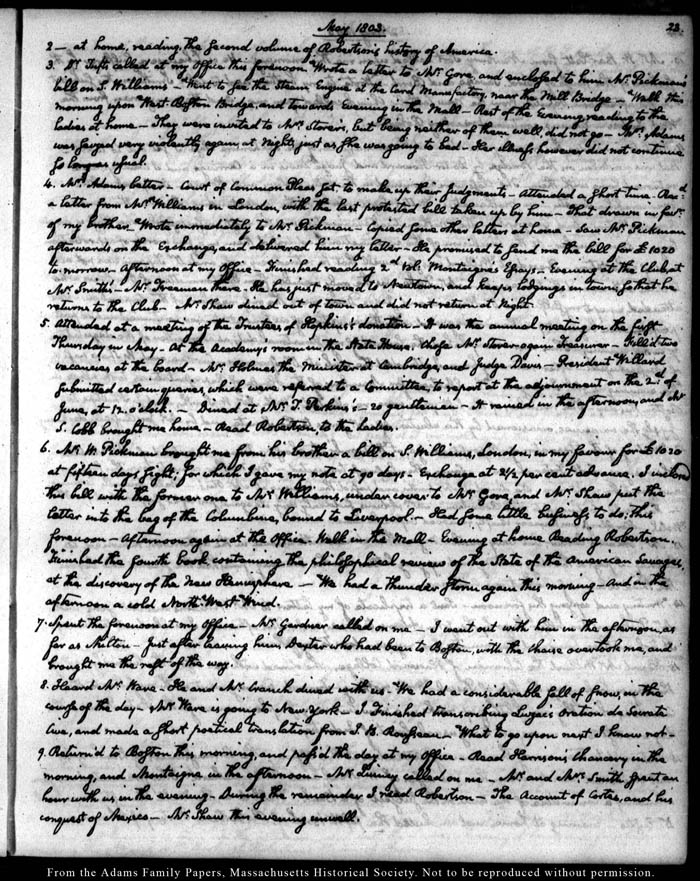 May 1803.
23.
2 — at home, reading the second volume of Robertson's history of America.
3. Dr. Tufts called at my Office this forenoon. Wrote a letter to Mr. Gore, and enclosed to him Mr. Pickman's
bill on S. Williams — Went to see the Steam Engine at the Card Manufactory near the Mill Bridge — Walk this
morning upon West Boston Bridge, and towards Evening in the Mall — Rest of the Evening reading to the
ladies at home — They were invited to Mrs. Storer's, but being neither of them well, did not go — Mrs. Adams
was seized very violently again at Night, just as she was going to bed — Her illness however did not continue
so long as usual.
4. Mrs. Adams better — Court of Common Pleas sat to make up their Judgments — Attended a short time — Recd
a letter from Mr. Williams in London, with the last protested bill taken up by him — That drawn in favr.
of my brother. Wrote immediately to Mr. Pickman — Copied some other letters at home — Saw Mr. Pickman
afterwards on the Exchange, and delivered him my letter — He promised to send me the bill for £1020
to-morrow — Afternoon at my Office — Finished reading 2d. vol: Montaigne's Essays — Evening at the Club, at
Mr. Smith's — Mr. Freeman there — He has just moved to Newtown, and keeps lodgings in town, so that he
returns to the Club — Mr. Shaw dined out of town and did not return at Night.
5. Attended at a meeting of the Trustees of Hopkins's donation — It was the annual meeting on the first
Thursday in May — At the Academy's room in the State House. Chose Mr. Storer again Treasurer — Fill'd two
vacancies at the board — Mr. Holmes the Minister at Cambridge, and Judge Davis — President Willard
submitted certain queries, which were referred to a Committee, to report at the adjournment on the 2d. of
June, at 12. o'clock. — Dined at Mr. T. Perkins's — 20 gentlemen — It rained in the afternoon, and Mr
S. Cobb brought me home — Read Robertson, to the ladies.
6. Mr. W. Pickman brought me from his brother a bill on S. Williams, London, in my favour for £1020
at fifteen days sight; for which I gave my note at 90 days — Exchange at 2½ per cent advance. I inclosed
this bill with the former one to Mr. Williams, under cover to Mr. Gore, and Mr. Shaw put the
letter into the bag of the Columbus, bound to Liverpool — Had some little business to do, this
forenoon — Afternoon again at the Office. Walk in the Mall — Evening at home Reading Robertson.
Finished the fourth book containing the philosophical review of the State of the American Savages,
at the discovery of the New Hemisphere — We had a thunder storm again this morning — And in the
afternoon a cold North-West Wind.
7. Spent the forenoon at my Office — Mr. Gardner called on me — I went out with him in the afternoon, as
far as Milton — Just after leaving him, Dexter who had been to Boston, with the chaise overtook me, and
brought me the rest of the way.
8. Heard Mr. Ware — He and Mr. Cranch dined with us — We had a considerable fall of snow, in the
course of the day — Mr. Ware is going to New-York — I finished transcribing Luzac's Oration de Socrate
Cive, and made a short poetical translation from J. B. Rousseau — What to go upon next I know not —
9. Return'd to Boston this morning, and pass'd the day at my Office — Read Harrison's Chancery in the
morning, and Montaigne in the afternoon — Mr. called on me — Mr. and Mrs. Smith spent an
hour with us in the evening — During the remainder I read Robertson — The Account of Cortes, and his
conquest of Mexico — Mr. Shaw this evening unwell.
From the Adams Family Papers, Massachusetts Historical Society. Not to be reproduced without permission.